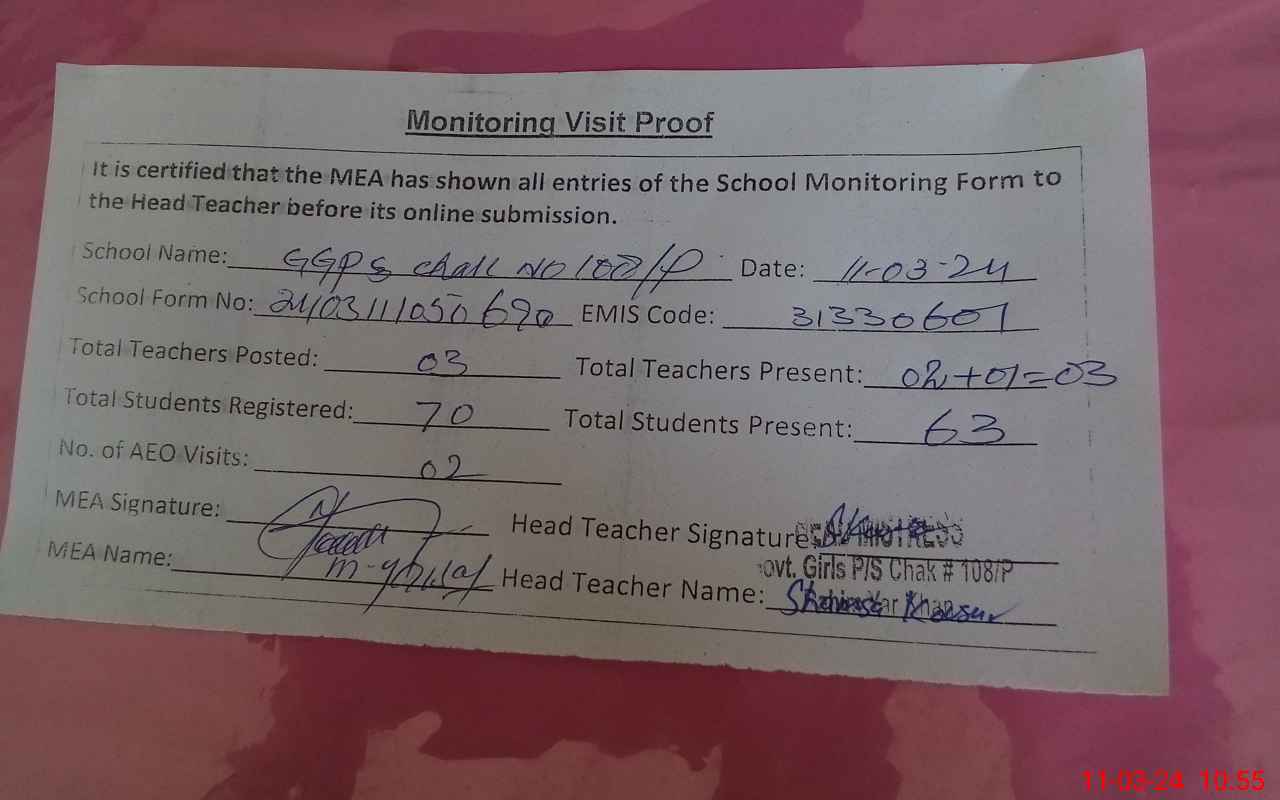 Monitoring Visit Proof
It is certified that the MEA has shown all entries of the School Monitoring Form to
the Head Teacher before its online submission.
School Name: GGPS Chak NO 108/P Date: 11-03-24
School Form No: 240311105 690 EMIS Code: 31330601
Total Teachers Posted: 03 Total Teachers Present: 02+01=03
Total Students Registered: 70 Total Students Present: 63
No. of AEO Visits: 02
MEA Signature: Head Teacher Signature: HEADMISTRESS
Govt. Girls P/S Chak # 108/P
MEA Name: Head Teacher Name: Rahim Yar Khan
11-03-24 10.55